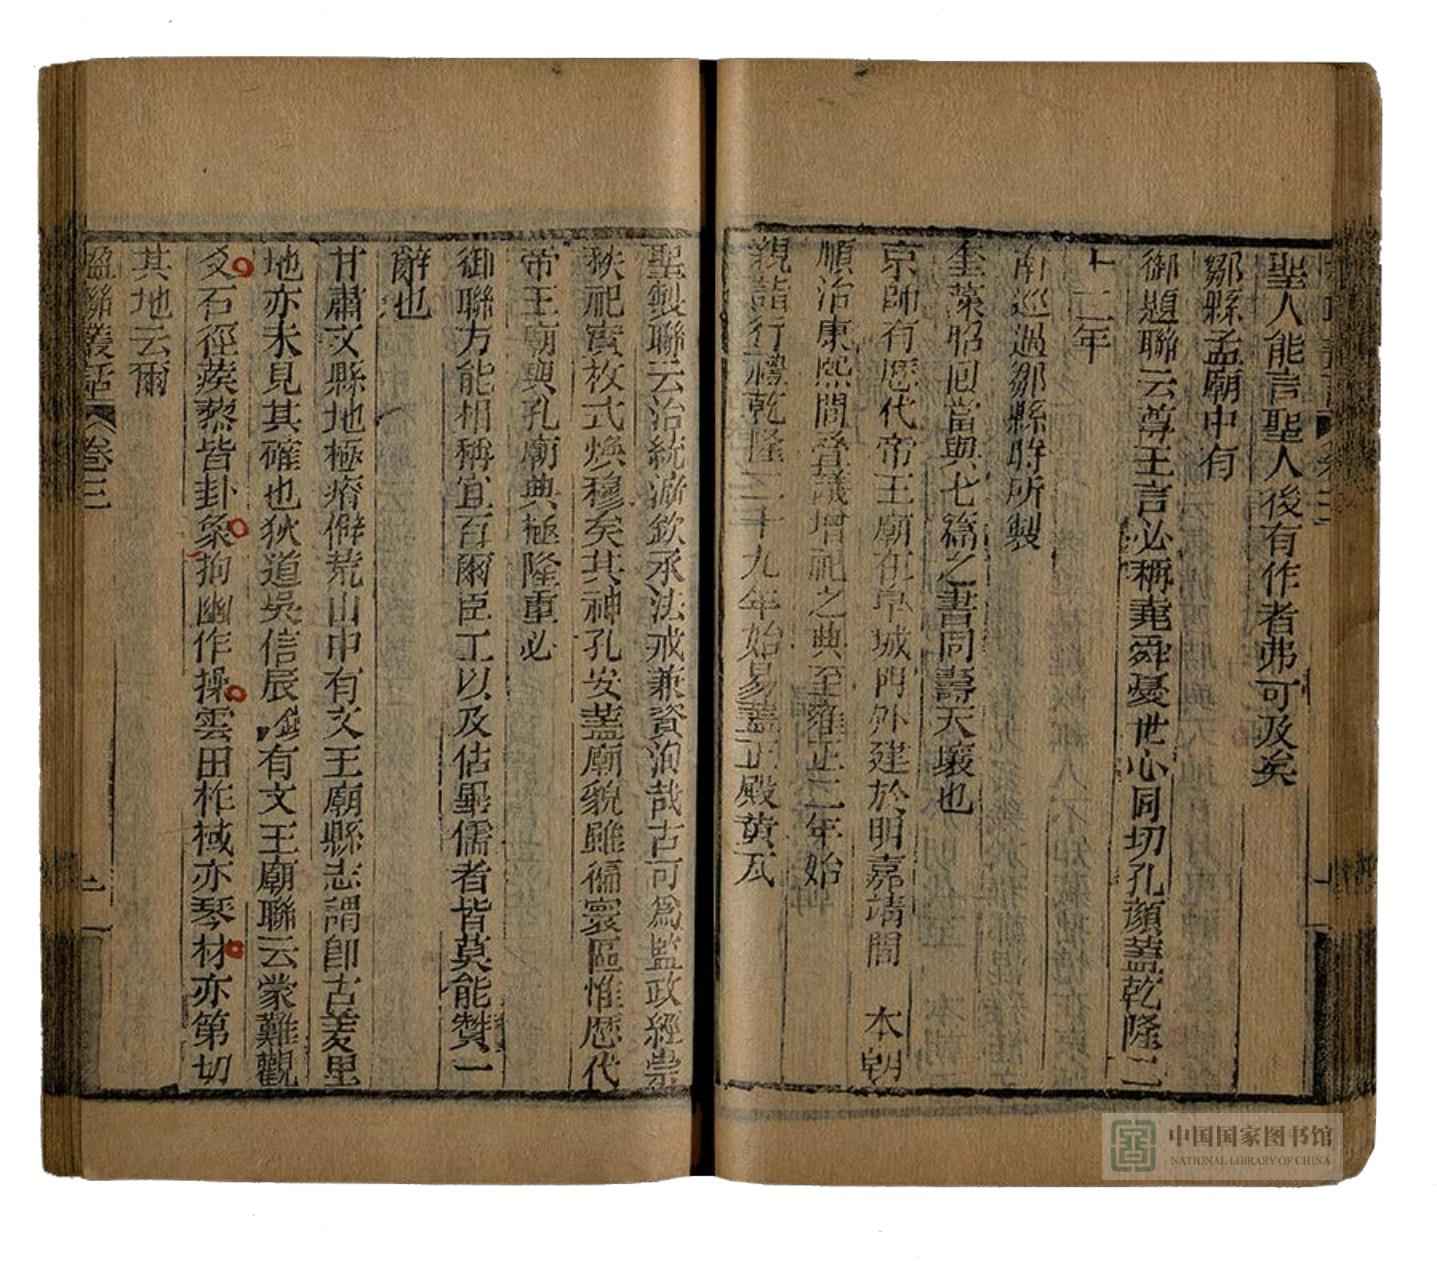 聖人能言聖人後有作者弗可及矣
鄒縣孟廟中有
御題聯云尊王言必稱堯舜憂世心同切孔顏蓋乾隆二
十二年
南巡過鄒縣時所製
奎藻昭回當與七篇之書同壽天壤也
京師有歷代帝王廟在阜城門外建於明嘉靖間 本朝
順治康熙間疊議增祀之典至雍正二年始
親詣行禮乾隆二十九年始易蓋正殿黃瓦
聖製聯云治統溯欽承法戒兼資洵哉古可為監政經崇
秩祀實枚式煥穆矣其神孔安蓋廟貌雖徧寰區惟歷代
帝王廟與孔廟典極隆重必
御聯方能相稱宜百爾臣工以及佔畢儒者皆莫能贊一
辭也
甘肅文縣地極瘠僻荒山中有文王廟縣志謂卽古羑里
地亦未見其確也狄道吳信辰鎮有文王廟聯云蒙難觀
爻石徑蒺藜皆卦象拘幽作操雲田柞棫亦琴材亦第切
其地云爾
楹聯叢話 卷三 二
中国国家图书馆
NATIONAL LIBRARY OF CHINA